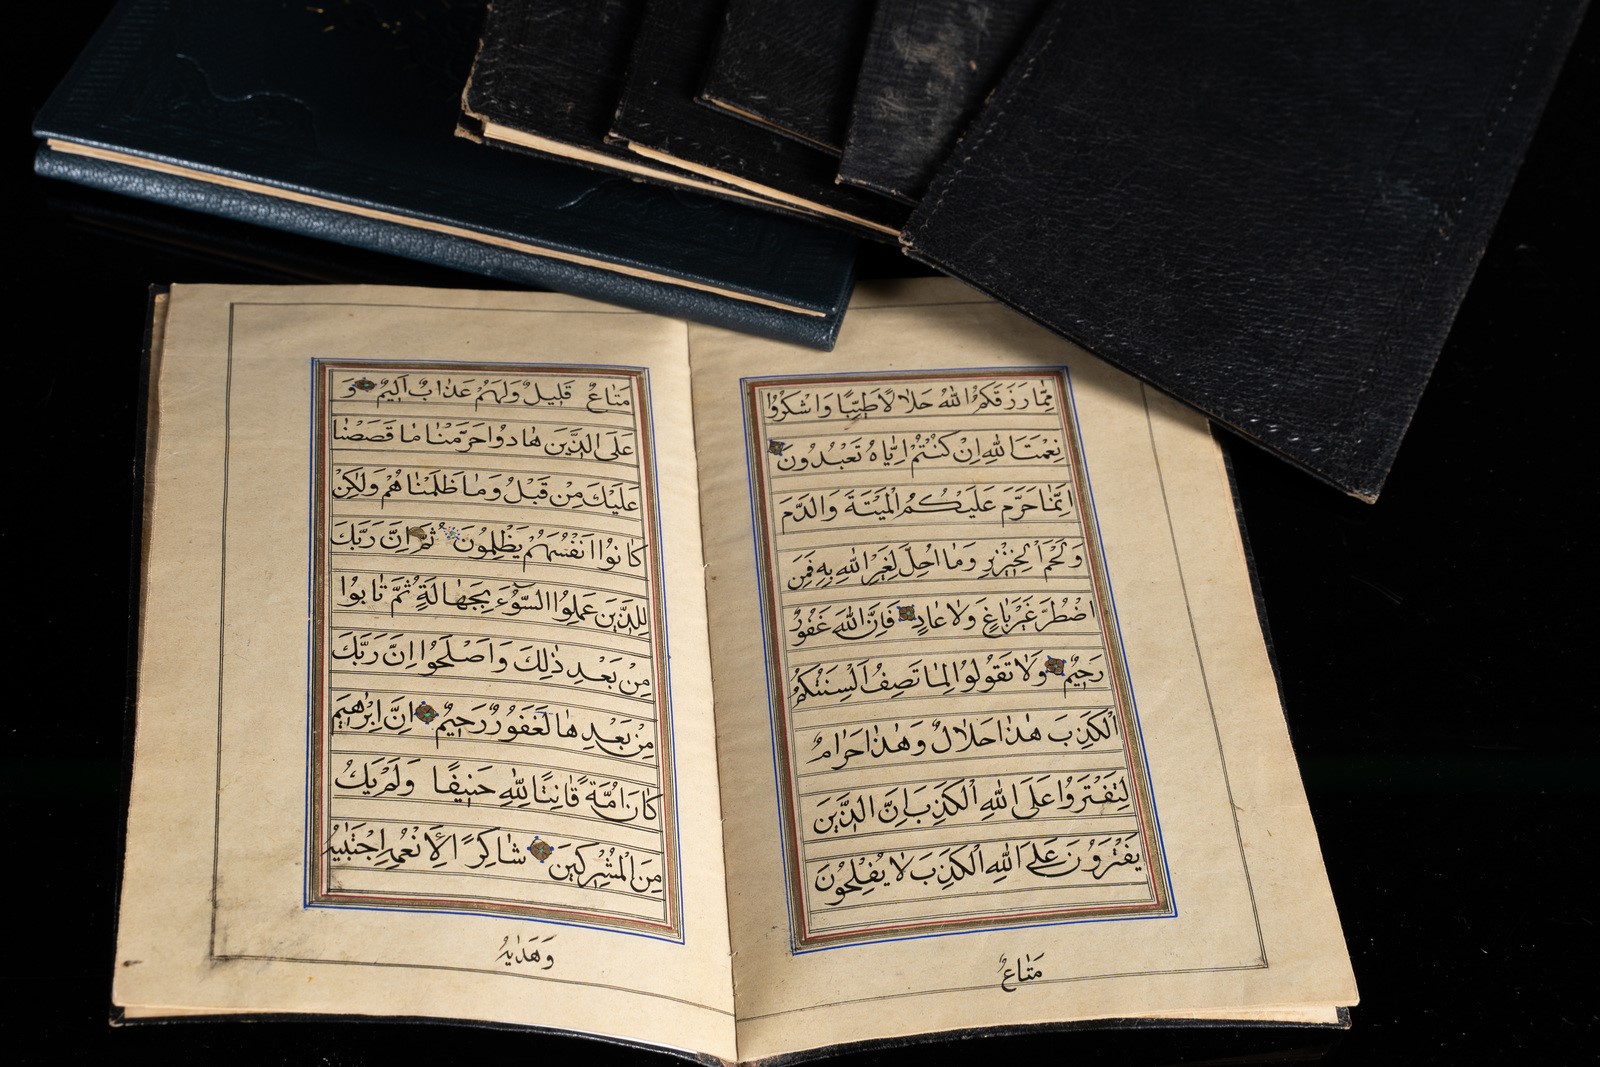 مِمَّا رَزَقَكُمُ اللّٰهُ حَلَالًا طَيِّبًا وَاشْكُرُوا
نِعْمَتَ اللّٰهِ اِنْ كُنْتُمْ اِيَّاهُ تَعْبُدُونَ
اِنَّمَا حَرَّمَ عَلَيْكُمُ الْمَيْتَةَ وَالدَّمَ
وَلَحْمَ الْخِنْزِيرِ وَمَا اُحِلَّ لِغَيْرِ اللّٰهِ بِهِ فَمَنِ
اضْطُرَّ غَيْرَ بَاغٍ وَلَا عَادٍ فَاِنَّ اللّٰهَ غَفُورٌ
رَحِيمٌ وَلَا تَقُولُوا لِمَا تَصِفُ اَلْسِنَتُكُمُ
الْكَذِبَ هٰذَا حَلَالٌ وَهٰذَا حَرَامٌ
لِتَفْتَرُوا عَلَى اللّٰهِ الْكَذِبَ اِنَّ الَّذِينَ
يَفْتَرُونَ عَلَى اللّٰهِ الْكَذِبَ لَا يُفْلِحُونَ
مَتَاعٌ
مَتَاعٌ قَلِيلٌ وَلَهُمْ عَذَابٌ اَلِيمٌ وَ
عَلَى الَّذِينَ هَادُوا حَرَّمْنَا مَا قَصَصْنَا
عَلَيْكَ مِنْ قَبْلُ وَمَا ظَلَمْنَاهُمْ وَلٰكِنْ
كَانُوا اَنْفُسَهُمْ يَظْلِمُونَ ثُمَّ اِنَّ رَبَّكَ
لِلَّذِينَ عَمِلُوا السُّوءَ بِجَهَالَةٍ ثُمَّ تَابُوا
مِنْ بَعْدِ ذٰلِكَ وَاَصْلَحُوا اِنَّ رَبَّكَ
مِنْ بَعْدِهَا لَغَفُورٌ رَحِيمٌ اِنَّ اِبْرٰهِيمَ
كَانَ اُمَّةً قَانِتًا لِلّٰهِ حَنِيفًا وَلَمْ يَكُ
مِنَ الْمُشْرِكِينَ شَاكِرًا لِاَنْعُمِهِ اِجْتَبٰيهُ
وَهَدٰيهُ